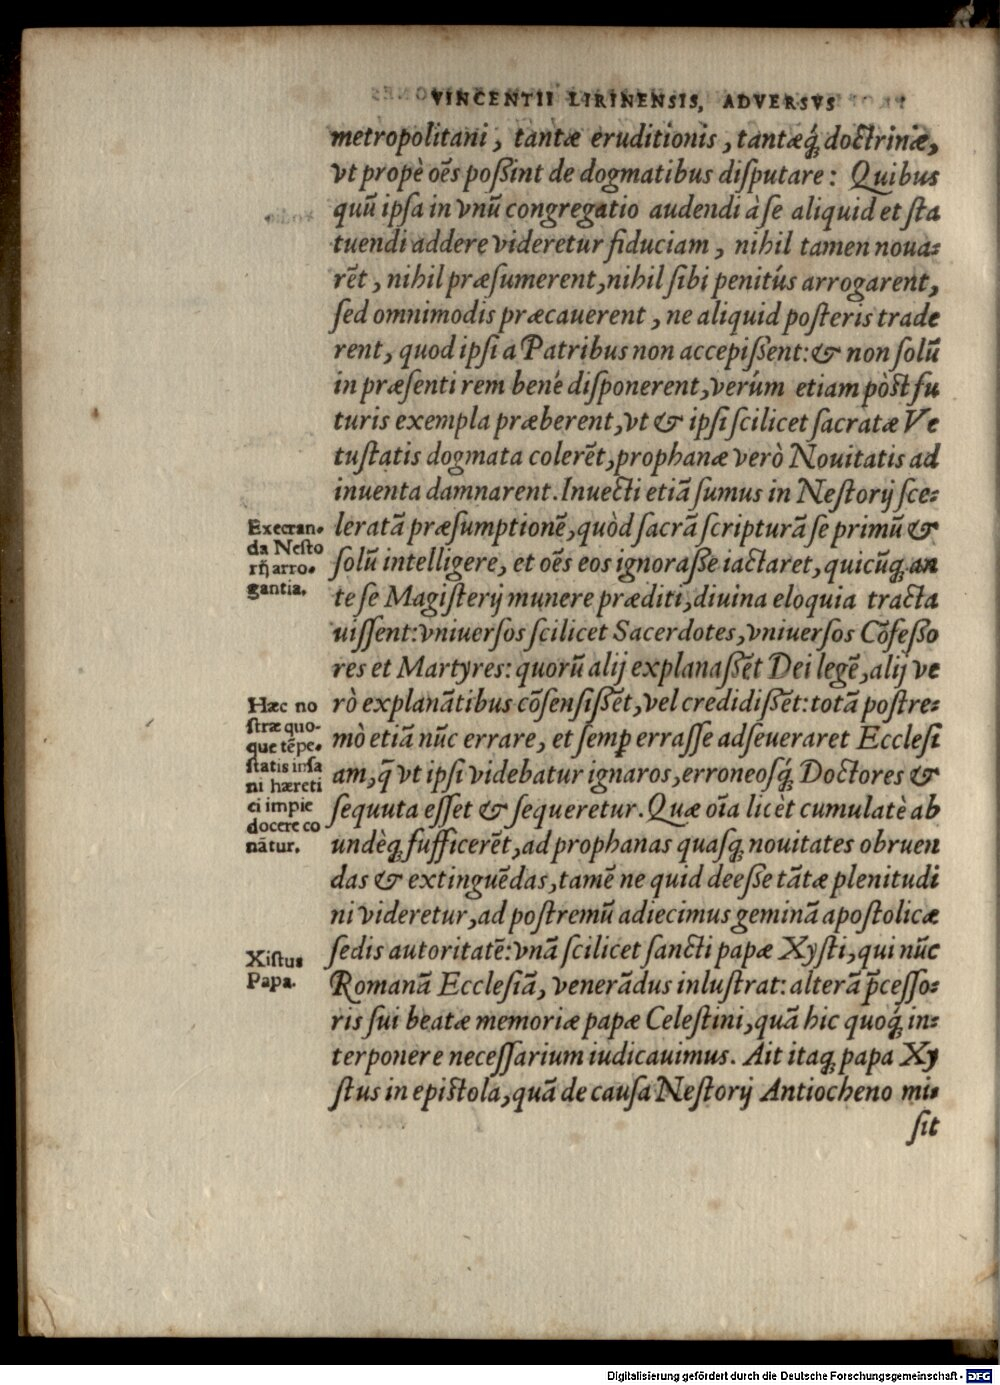 VINCENTII LIRINENSIS, ADVERSVS
metropolitani, tantæ eruditionis, tantæq́; doctrinæ,
vt propè oẽs poßint de dogmatibus diſputare: Quibus
quũ ipſa in vnũ congregatio audendi à ſe aliquid et ſta
tuendi addere videretur fiduciam, nihil tamen noua=
rẽt, nihil præſumerent, nihil ſibi penitús arrogarent,
ſed omnimodis præcauerent, ne aliquid poſteris trade
rent, quod ipſi a Patribus non accepißent: & non ſolũ
in præſenti rem bené diſponerent, verúm etiam pòſt fu
turis exempla præberent, vt & ipſi ſcilicet ſacratæ Ve
tuſtatis dogmata colerẽt, prophanæ verò Nouitatis ad
inuenta damnarent. Inuecti etiã ſumus in Neſtorij ſce=
leratã præſumptionẽ, quòd ſacrã ſcripturã ſe primũ &
ſolũ intelligere, et oẽs eos ignoraße iactaret, quicũq; an
te ſe Magiſterij munere præditi, diuina eloquia tracta
uiſſent: vniuerſos ſcilicet Sacerdotes, vniuerſos Cõfeßo
res et Martyres: quorũ alij explanaßẽt Dei legẽ, alij ve
rò explanãtibus cõſenſißẽt, vel credidißẽt: totã poſtre=
mò etiã nũc errare, et ſemꝑ erraſſe adſeueraret Eccleſi
am, q̃ vt ipſi videbatur ignaros, erroneoſq́; Doctores &
ſequuta eſſet & ſequeretur. Quæ oĩa licèt cumulatè ab
undèq; ſufficerẽt, ad prophanas quaſq; nouitates obruen
das & extinguẽdas, tamẽ ne quid deeße tãtæ plenitudi
ni videretur, ad poſtremũ adiecimus geminã apoſtolicæ
ſedis autoritatẽ: vnã ſcilicet ſancti papæ Xyſti, qui nũc
Romanã Eccleſiã, venerãdus inluſtrat: alterã p̃ceſſo=
ris ſui beatæ memoriæ papæ Celeſtini, quã hic quoq́; in=
terponere neceſſarium iudicauimus. Ait itaq; papa Xy
ſtus in epiſtola, quã de cauſa Neſtorij Antiocheno mi=
ſit
Execran=
da Neſto
rij arro=
gantia.
Hæc no
ſtræ quo-
que tẽpe=
ſtatis inſa
ni hæreti
ci impie
docere co
nãtur.
Xiſtus
Papa.
Digitalisierung gefördert durch die Deutsche Forschungsgemeinschaft - DFG